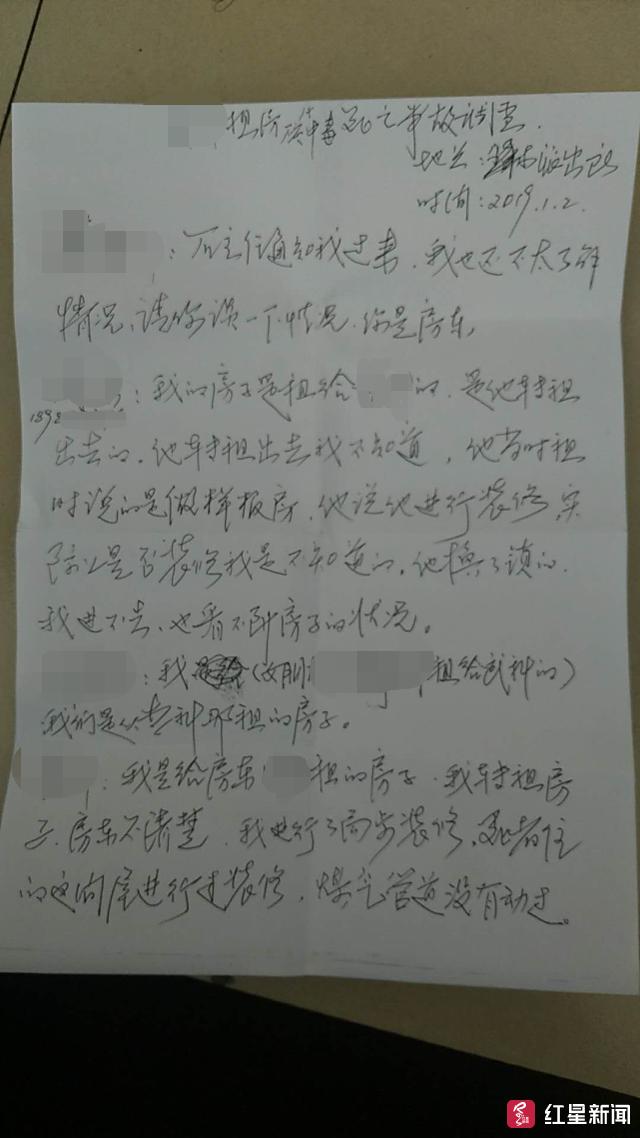 租房煤气中毒死亡事故调查.
地点:派出所
时间:2019.1.2.
:万主任通知我过来,我也还不太了解
情况,请你谈一下情况.你是房东,
1898
:我的房子是租给的.是他转租
出去的.他转租出去我不知道,他当时租
时说的是做样板房,他说他进行装修,实
际上是否装修我是不知道的,他换了锁的.
我进不去,也看不到房子的状况。
:我(女朋租给的)
我们是从那租的房子。
:我是给房东租的房子.我转租房
子,房东不清楚,我进行了局部装修,死者住
的这间屋进行过装修,煤气管道没有动过。
红星新闻